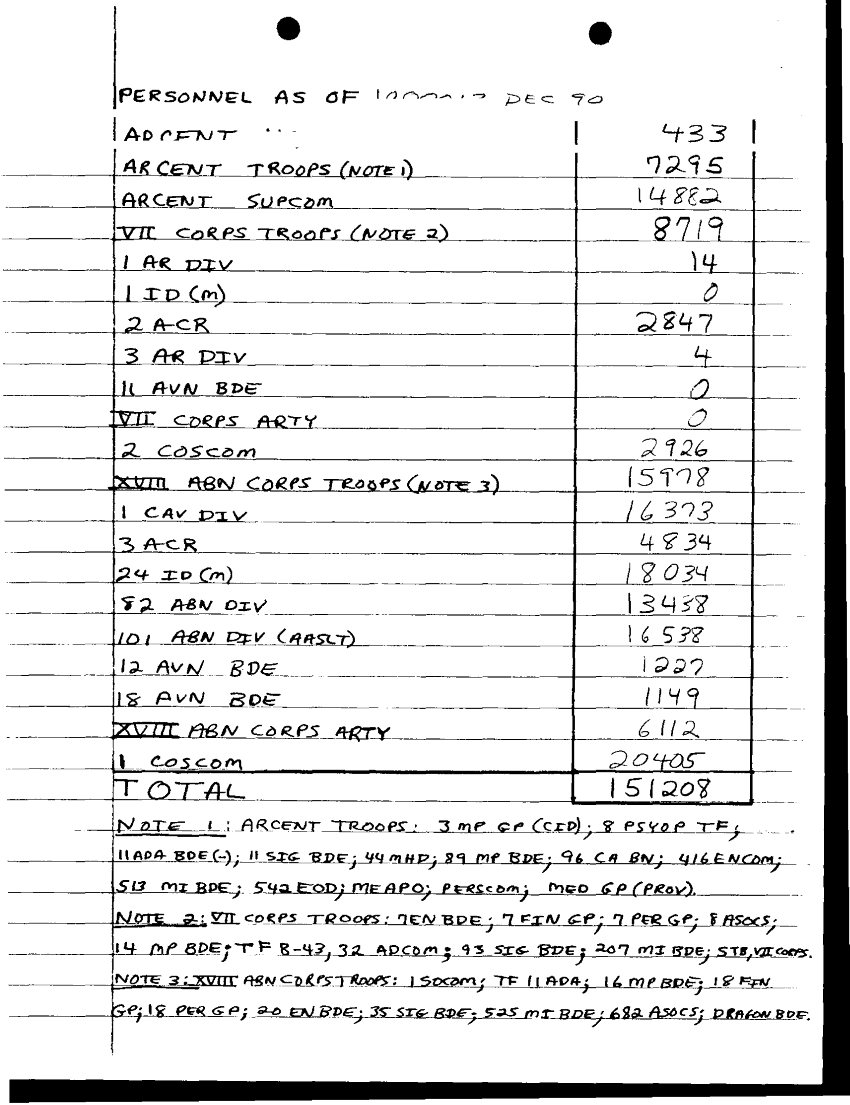 PERSONNEL AS OF DEC 90
433
ARCENT TROOPS (NOTE 1) 7295
ARCENT SUPCOM 14882
VII CORPS TROOPS (NOTE 2) 8719
1 AR DIV 14
1 ID (M) 0
2 ACR 2847
3 AR DIV 4
11 AVN BDE 0
VII CORPS ARTY 0
2 COSCOM 2926
XVIII ABN CORPS TROOPS (NOTE 3) 15978
1 CAV DIV 16373
3 ACR 4834
24 ID (M) 18034
82 ABN DIV 13438
101 ABN DIV (AASLT) 16538
12 AVN BDE 1227
18 AVN BDE 1149
XVIII ABN CORPS ARTY 6112
1 COSCOM 20405
TOTAL 151208
NOTE 1: ARCENT TROOPS: 3 MP GP (CID); 8 PSYOP TF;
11 ADA BDE (-); 11 SIG BDE; 44 MHD; 89 MP BDE; 96 CA BN; 416 ENCOM;
513 MI BDE; 542 EOD; MEAPO; PERSCOM; MED GP (PROV).
NOTE 2: VII CORPS TROOPS: 7 EN BDE; 7 FIN GP; 7 PER GP; 8 ASOCS;
14 MP BDE; TF 8-43, 32 ADCOM; 93 SIG BDE; 207 MI BDE; STB, VII CORPS.
NOTE 3: XVIII ABN CORPS TROOPS: 1 SOCOM; TF 11 ADA; 16 MP BDE; 18 FIN
GP; 18 PER GP; 20 EN BDE; 35 SIG BDE; 525 MI BDE; 682 ASOCS; DRAGON BDE.